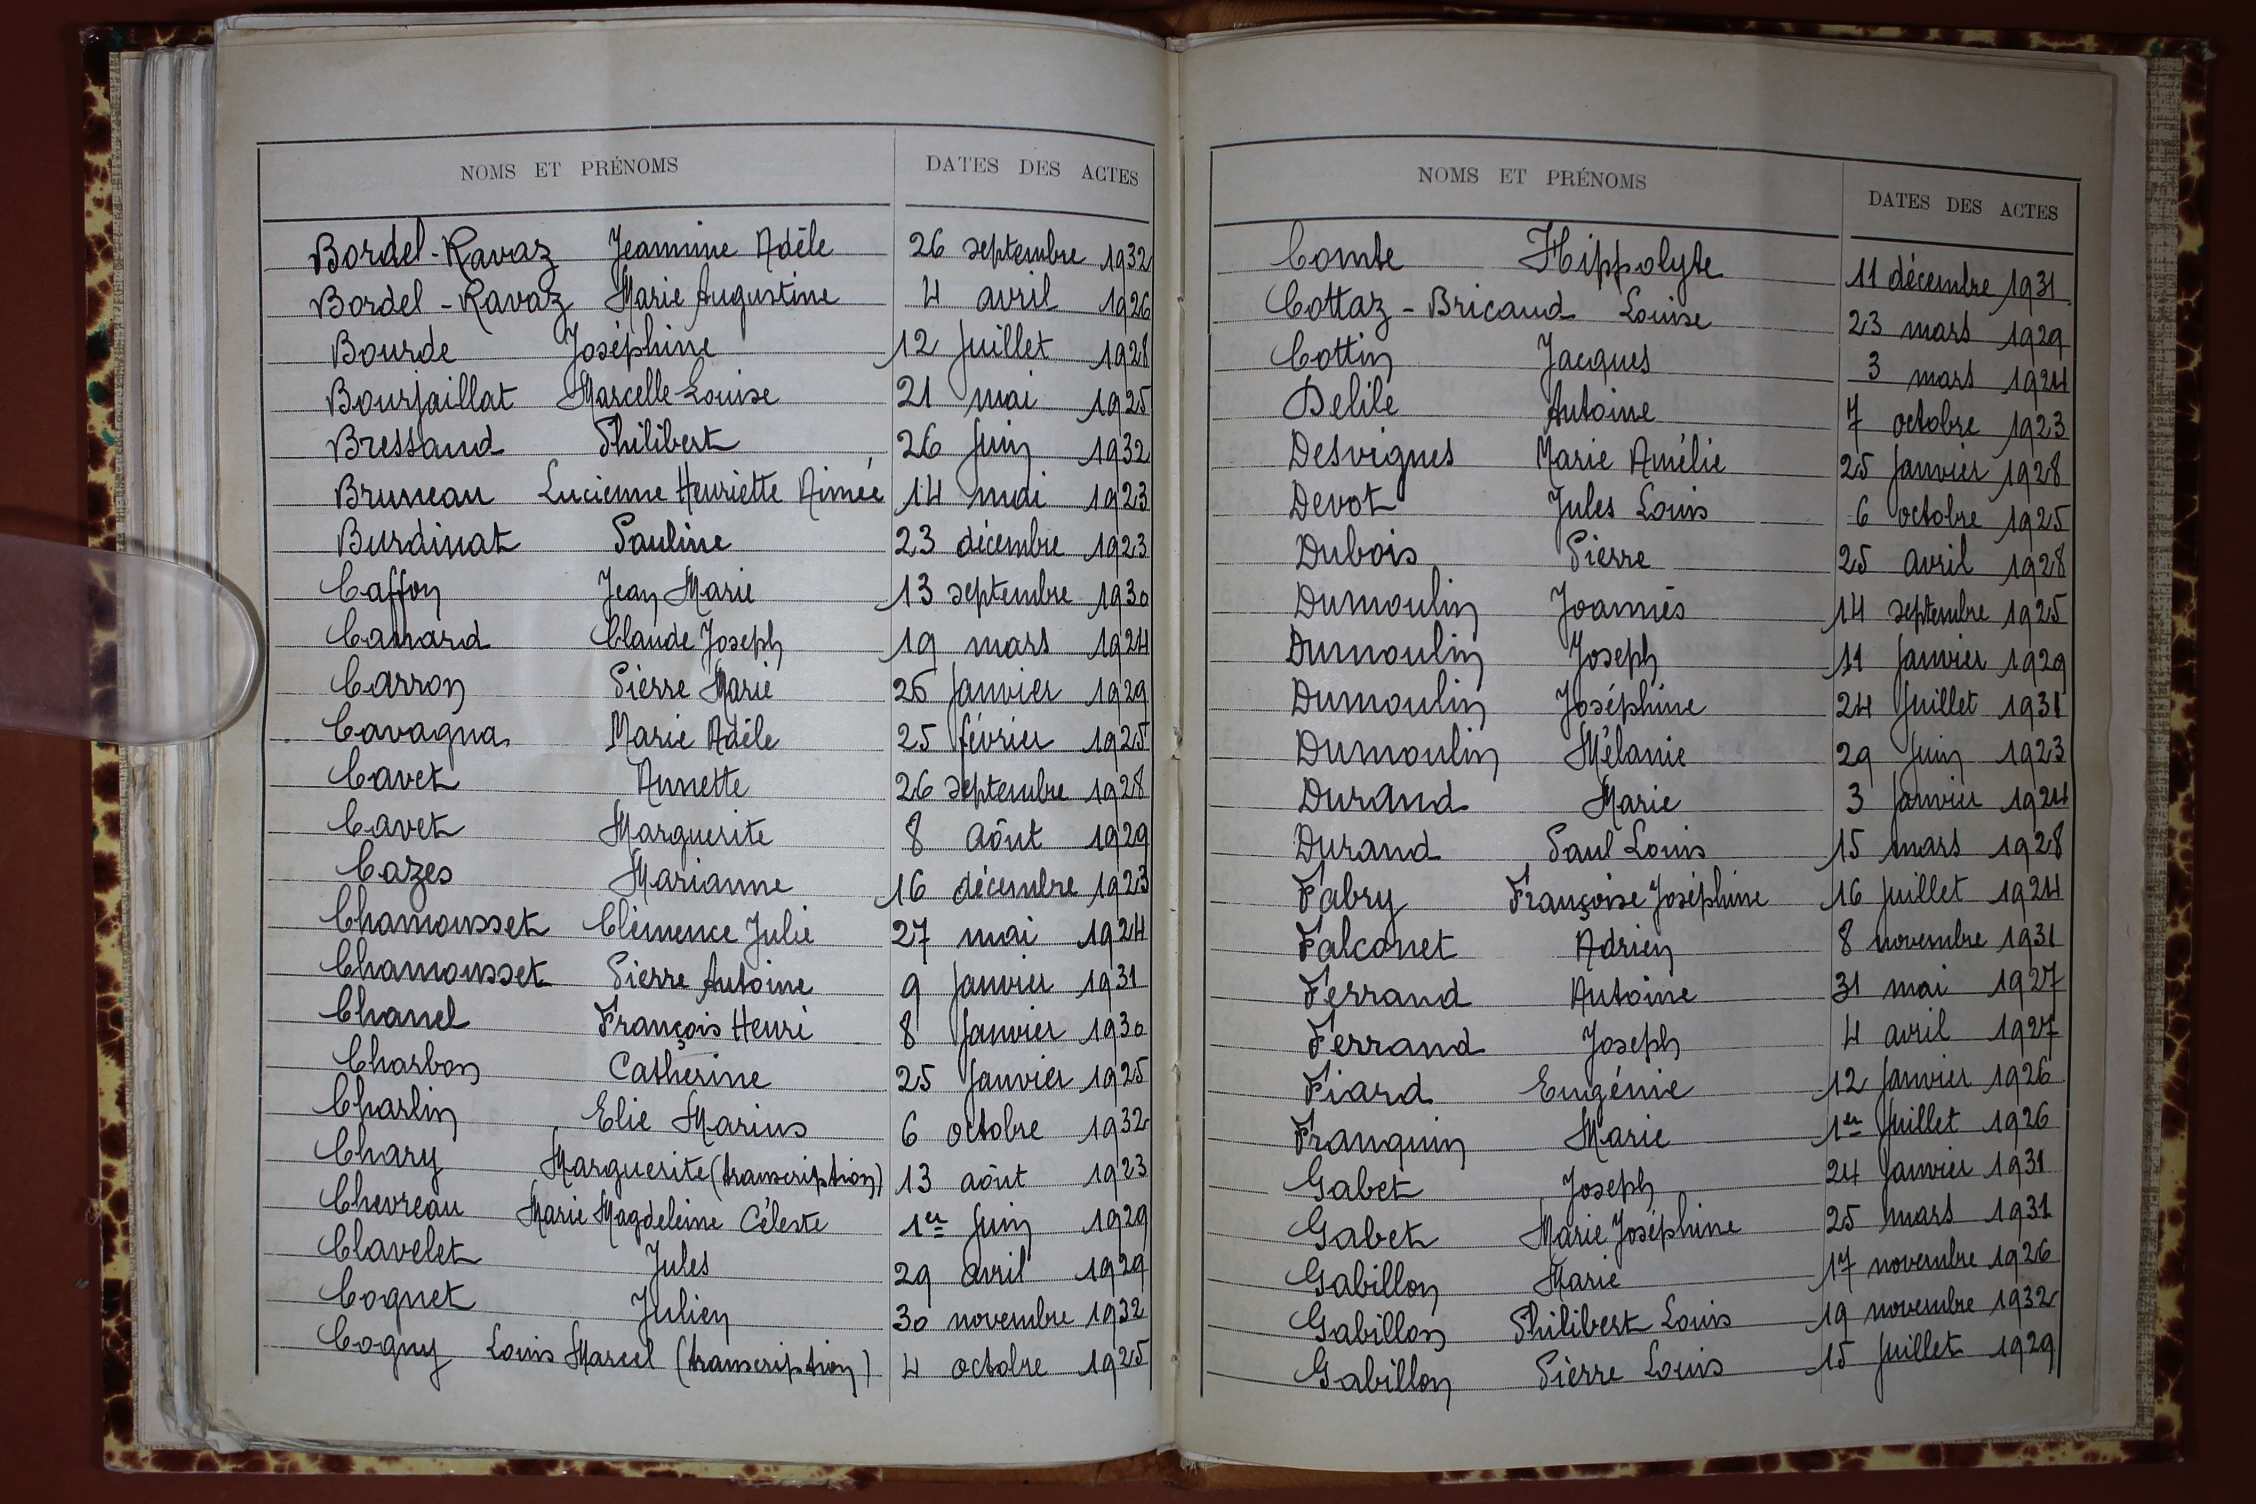 NOMS ET PRÉNOMS DATES DES ACTES
Bordel-Ravaz Jeannine Adèle 26 septembre 1932
Bordel-Ravaz Marie Augustine 4 avril 1926
Bourde Joséphine 12 Juillet 1928
Bourjaillat Marcelle-Louise 21 mai 1925
Bressand Philibert 26 Juin 1932
Bruneau Lucienne Henriette Aimée 14 mai 1923
Burdinat Pauline 23 décembre 1923
Caffon Jean Marie 13 septembre 1930
Canard Claude Joseph 19 mars 1924
Carron Pierre Marie 26 Janvier 1929
Cavagna Marie Adèle 25 février 1925
Cavet Annette 26 septembre 1928
Cavet Marguerite 8 Aôut 1929
Cazes Marianne 16 décembre 1923
Chamousset Clèmence Julie 27 mai 1924
Chamousset Pierre Antoine 9 Janvier 1931
Chanel François Henri 8 Janvier 1930
Charbon Catherine 25 Janvier 1925
Charlin Elie Marius 6 octobre 1932
Chary Marguerite (transcription) 13 aôut 1923
Chevreau Marie Magdeleine Céleste 1er Juin 1929
Clavelet Jules 29 avril 1929
Cognet Julien 30 novembre 1932
Cogny Louis Marcel (transcription) 4 octobre 1925
NOMS ET PRÉNOMS DATES DES ACTES
Comte Hippolyte 11 décembre 1931
Cottaz-Bricaud Louise 23 mars 1929
Cottin Jacques 3 mars 1924
Delile Antoine 7 octobre 1923
Desvignes Marie Amélie 25 Janvier 1928
Devot Jules Louis 6 octobre 1925
Dubois Pierre 25 avril 1928
Dumoulin Joannès 14 septembre 1925
Dumoulin Joseph 11 Janvier 1929
Dumoulin Joséphine 24 Juillet 1931
Dumoulin Mélanie 29 Juin 1923
Durand Marie 3 Janvier 1924
Durand Paul Louis 15 mars 1928
Fabry Françoise Joséphine 16 Juillet 1924
Falconet Adrien 8 novembre 1931
Ferrand Antoine 31 mai 1927
Ferrand Joseph 4 avril 1927
Fiard Eugénie 12 Janvier 1926
Franquin Marie 1er Juillet 1926
Gabet Joseph 24 Janvier 1931
Gabet Marie Joséphine 25 mars 1931
Gabillon Marie 17 novembre 1926
Gabillon Philibert Louis 19 novembre 1932
Gabillon Pierre Louis 15 Juillet 1929